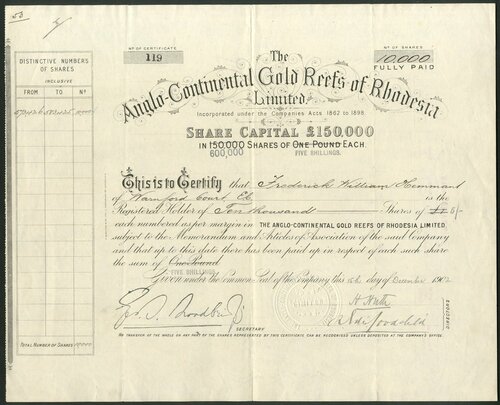 53
Nº OF CERTIFICATE
119
Nº OF SHARES
10,000
FULLY PAID
The
Anglo-Continental Gold Reefs of Rhodesia
Limited.
Incorporated under the Companies Acts. 1862 to 1898.
SHARE CAPITAL £150,000
IN 150,000 SHARES OF ONE POUND EACH.
600,000 FIVE SHILLINGS.
DISTINCTIVE NUMBERS
OF SHARES
INCLUSIVE
FROM TO Nº
10000
This is to Certify that Frederick William
of Warnford Court E.C. is the
Registered Holder of Ten thousand Shares of £1 5/-
each numbered as per margin in THE ANGLO-CONTINENTAL GOLD REEFS OF RHODESIA LIMITED,
subject to the Memorandum and Articles of Association of the said Company
and that up to this date there has been paid up in respect of each such share
the sum of One Pound
FIVE SHILLINGS
Given under the Common Seal of the Company this 15th day of December 1902
SECRETARY
DIRECTORS
TOTAL NUMBER OF SHARES 10000
NO TRANSFER OF THE WHOLE OR ANY PART OF THE SHARES REPRESENTED BY THIS CERTIFICATE CAN BE RECOGNISED UNLESS DEPOSITED AT THE COMPANY'S OFFICE.